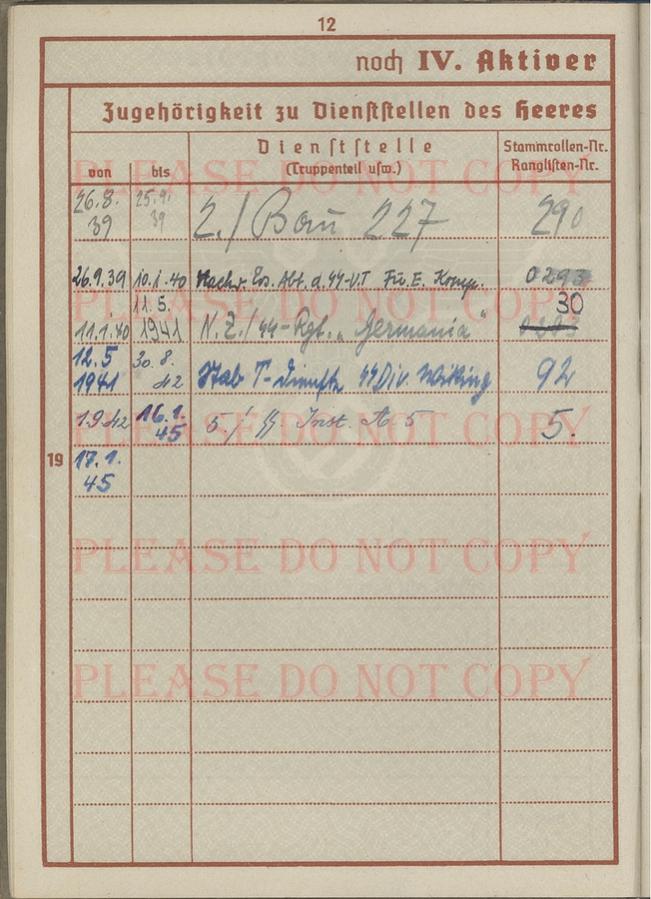 12
noch IV. Aktiver
Zugehörigkeit zu Dienststellen des Heeres
von bis Dienststelle (Truppenteil usw.) Stammrollen-Nr. Ranglisten-Nr.
PLEASE DO NOT COPY
26.8. 39 25.9. 39 2./Bau 227 290
26.9.39 10.1.40 Nachr. Ers. Abt. d. SS-V.T Fu. E. Komp. 0293
PLEASE DO NOT COPY
11.1.40 11.5. 1941 N.Z./SS-Rgt. „Germania" 30
12.5 1941 30.8. 42 Stab T-Dienste SS Div. Wiking 92
1.9.42 16.1. 45 5/SS. Inst. 5 5.
PLEASE DO NOT COPY
19 17.1. 45
PLEASE DO NOT COPY
PLEASE DO NOT COPY